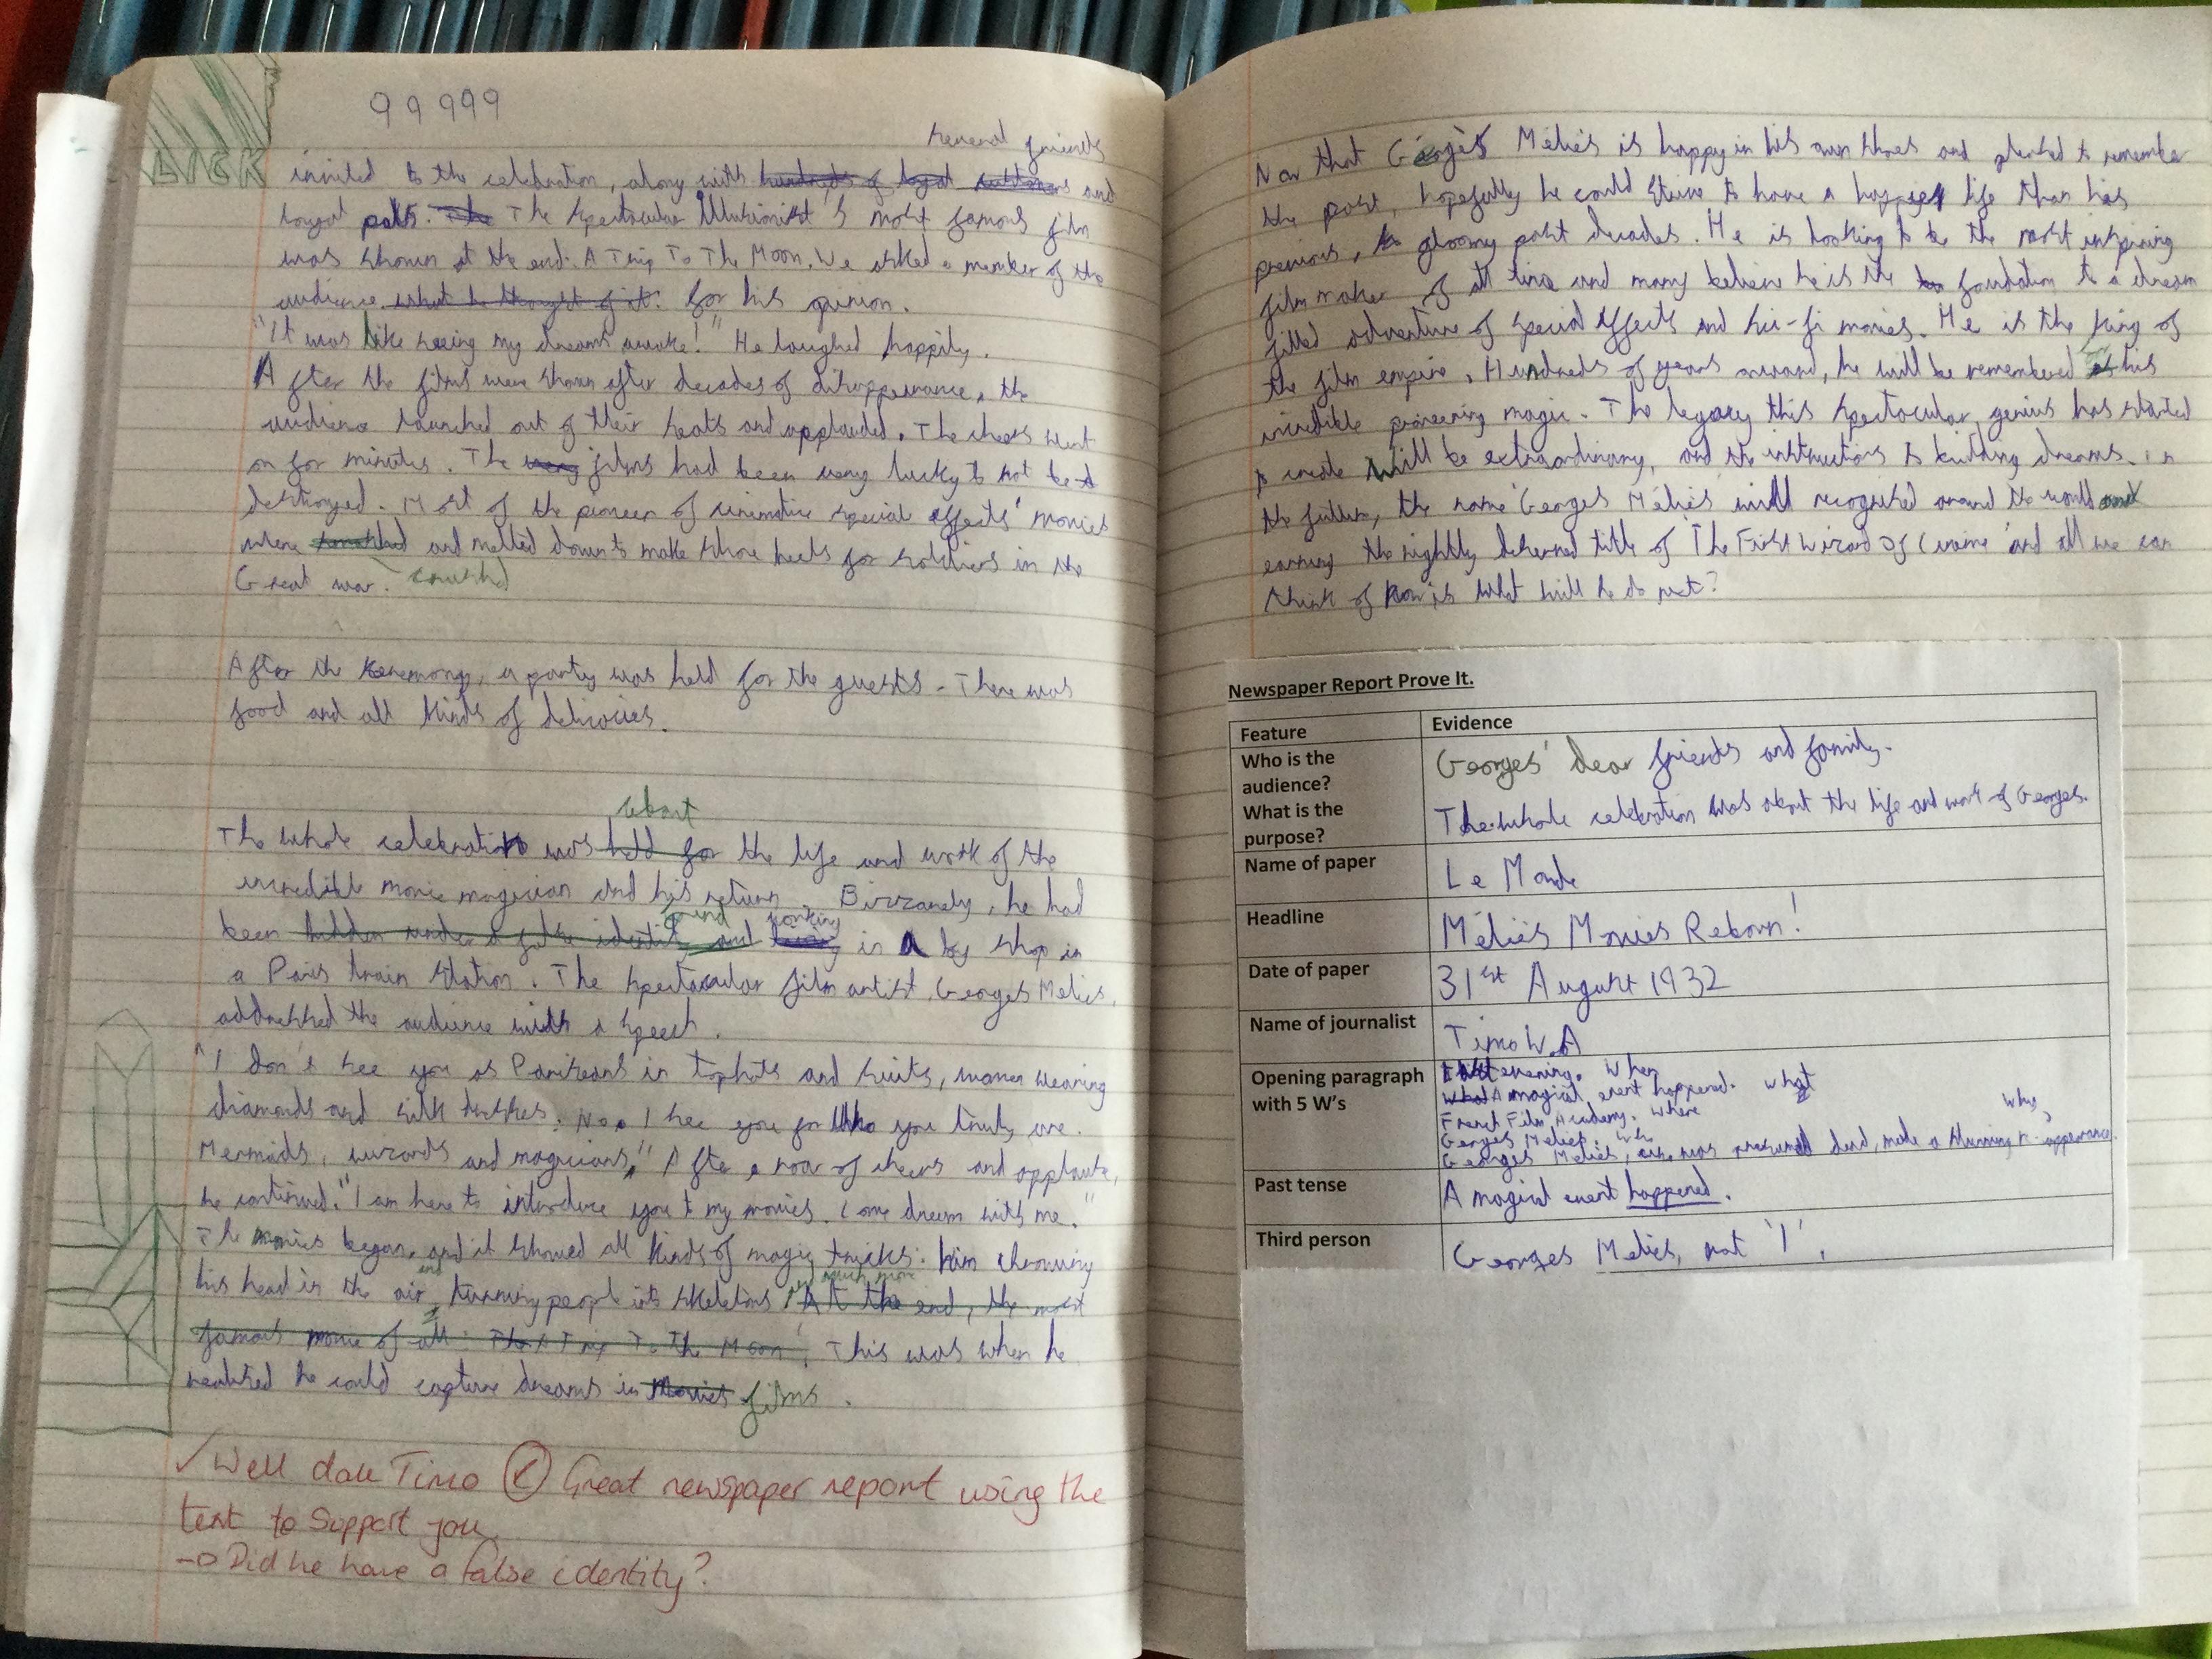 99999
LICK
several friends
invited to the celebration, along with hundreds of loyal and
loyal pals. The The Spectacular Illusionist's most famous film
was shown at the end: A Trip To The Moon. We asked a member of the
audience what he thought of it. for his opinion.
"It was like seeing my dreams awake!" He laughed happily.
After the films were shown after decades of dissappearance, the
audience launched out of their seats and applauded. The cheers went
on for minutes. The very films had been very lucky to not be
destroyed. Most of the pioneer of cinimative special effects' movies
were and melted down to make shoe heels for soldiers in the
Great war. crushed
After the ceremony, a party was held for the guests. There was
food and all kinds of delicacies.
about
The whole celebration was held for the life and work of the
incredible movie magician and his return. Bizzarely, he had
found working
been hidden under a false identity and in a toy shop in
a Paris train station. The spectacular film artist, Georges Melies,
addressed the audience with a speech.
"I don't see you as Pariseans in tophats and suits, wearing
diamonds and silk dresses. No. I see you for who you truly are.
Mermaids, wizards and magicians." After a roar of cheers and applause,
he continued. "I am here to introduce you to my movies. Come dream with me."
The movies began, and it showed all kinds of magic tricks: him throwing
and much more
his head in the air, turning people into skeletons At the end, the most
famous movie of all: The A Trip To The Moon. This was when he
realised he could capture dreams in Movies films.
✓ Well done Timo Great newspaper report using the
text to support you.
→ Did he have a false identity?
Now that Georges Méliès is happy in his own shoes and pleased to remember
the past, hopefully he could strive to have a happier life than his
previous, gloomy past decades. He is looking to be the most inspiring
film maker of all time and many believe he is the foundation to a dream
filled adventure of special effects and sci-fi movies. He is the King of
the film empire. Hundreds of years onward, he will be remembered his
incredible pioneering magic. The legacy this spectacular genius has started
to create will be extraordinary, and the instructions to building dreams. In
the future, the name Georges Méliès will recognised around the world and
earning the rightly deserved title of 'The First Wizard Of Cinema' and all we can
think of now is what will he do next?
Newspaper Report Prove It.
Feature Evidence
Who is the audience? Georges' dear friends and family.
What is the purpose? The whole celebration was about the life and work of Georges.
Name of paper Le Monde
Headline Méliès Movies Reborn!
Date of paper 31st August 1932
Name of journalist Timo W.A
Opening paragraph with 5 W's Last evening. When
What A magical event happened. What
French Film Academy. Where
Georges Melies. Who
Georges Melies, who was presumed dead, made a stunning re-appearance. Why
Past tense A magical event happened.
Third person Georges Melies, not 'I'.